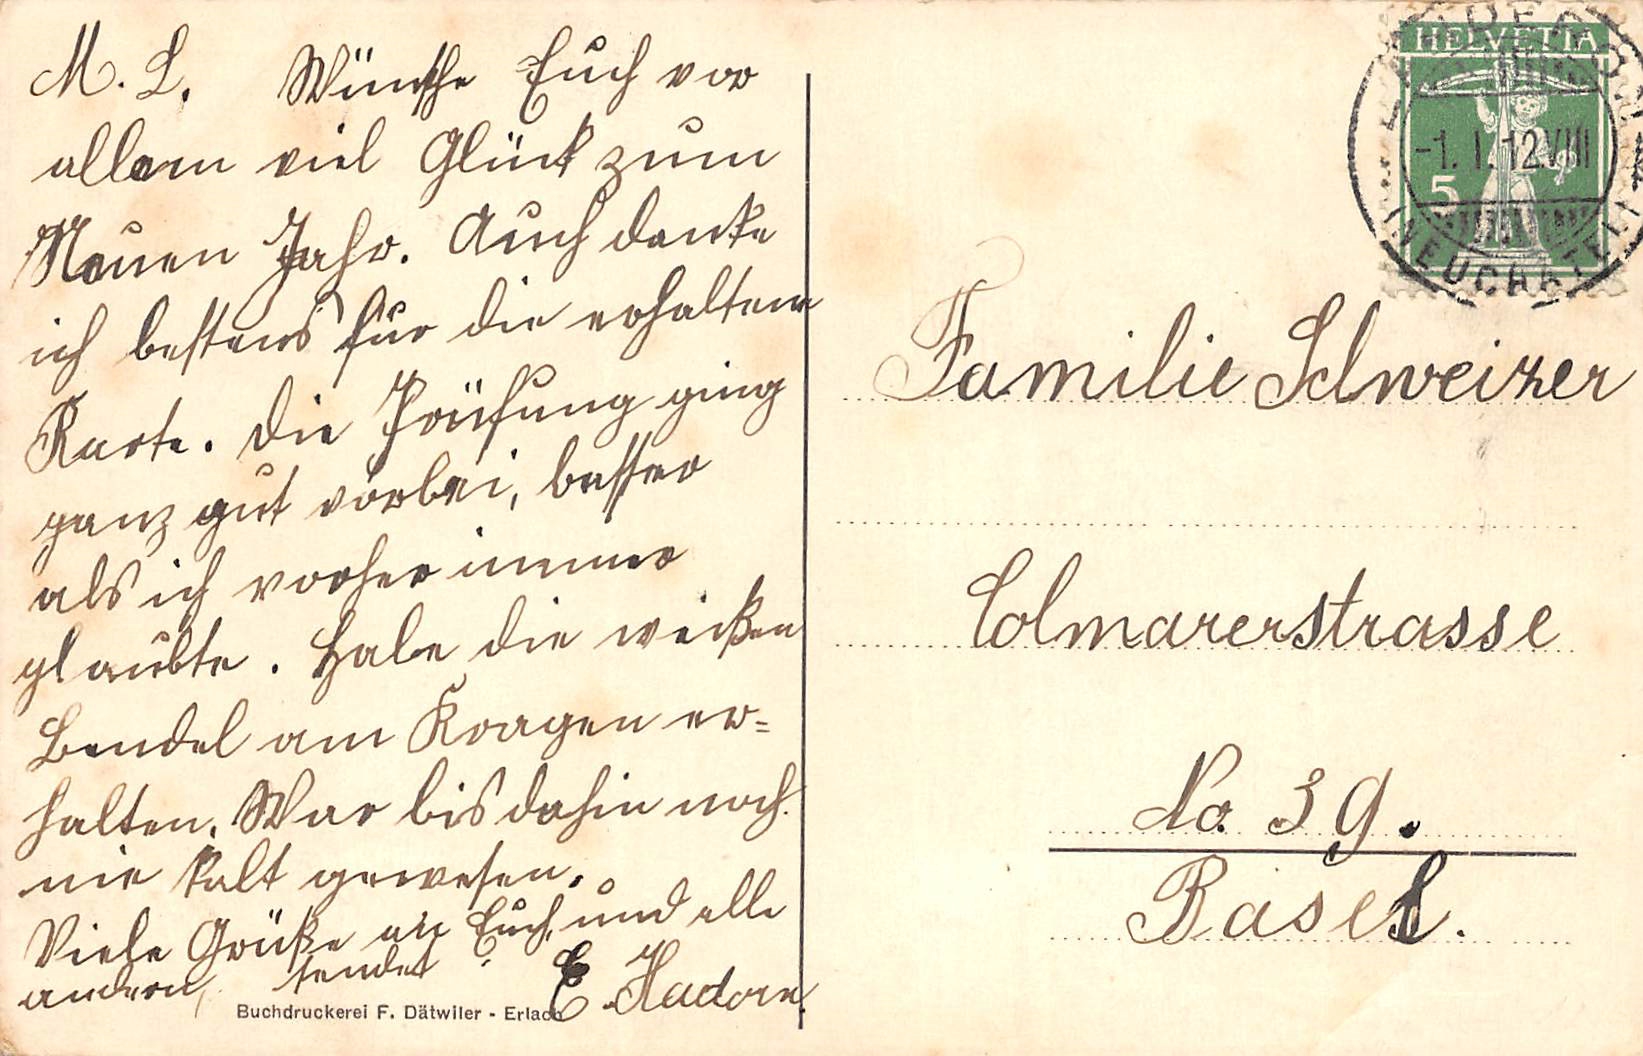 M. L. Wünsche Euch vor
allem viel Glück zum
Neuen Jahr. Auch danke
ich bestens für die erhaltene
Karte. Die Prüfung ging
ganz gut vorbei, besser
als ich vorher immer
glaubte. Habe die weißen
Bendel am Kragen er=
halten. War bis dahin noch
nie kalt gewesen.
Viele Grüße an Euch, und alle
andern, sendet
E. Hadorn
Buchdruckerei F. Dätwiler - Erlach
HELVETIA
5
-1. I. 12 VIII
(NEUCHATEL)
Familie Schweizer
Colmarerstrasse
No. 39.
Basel.